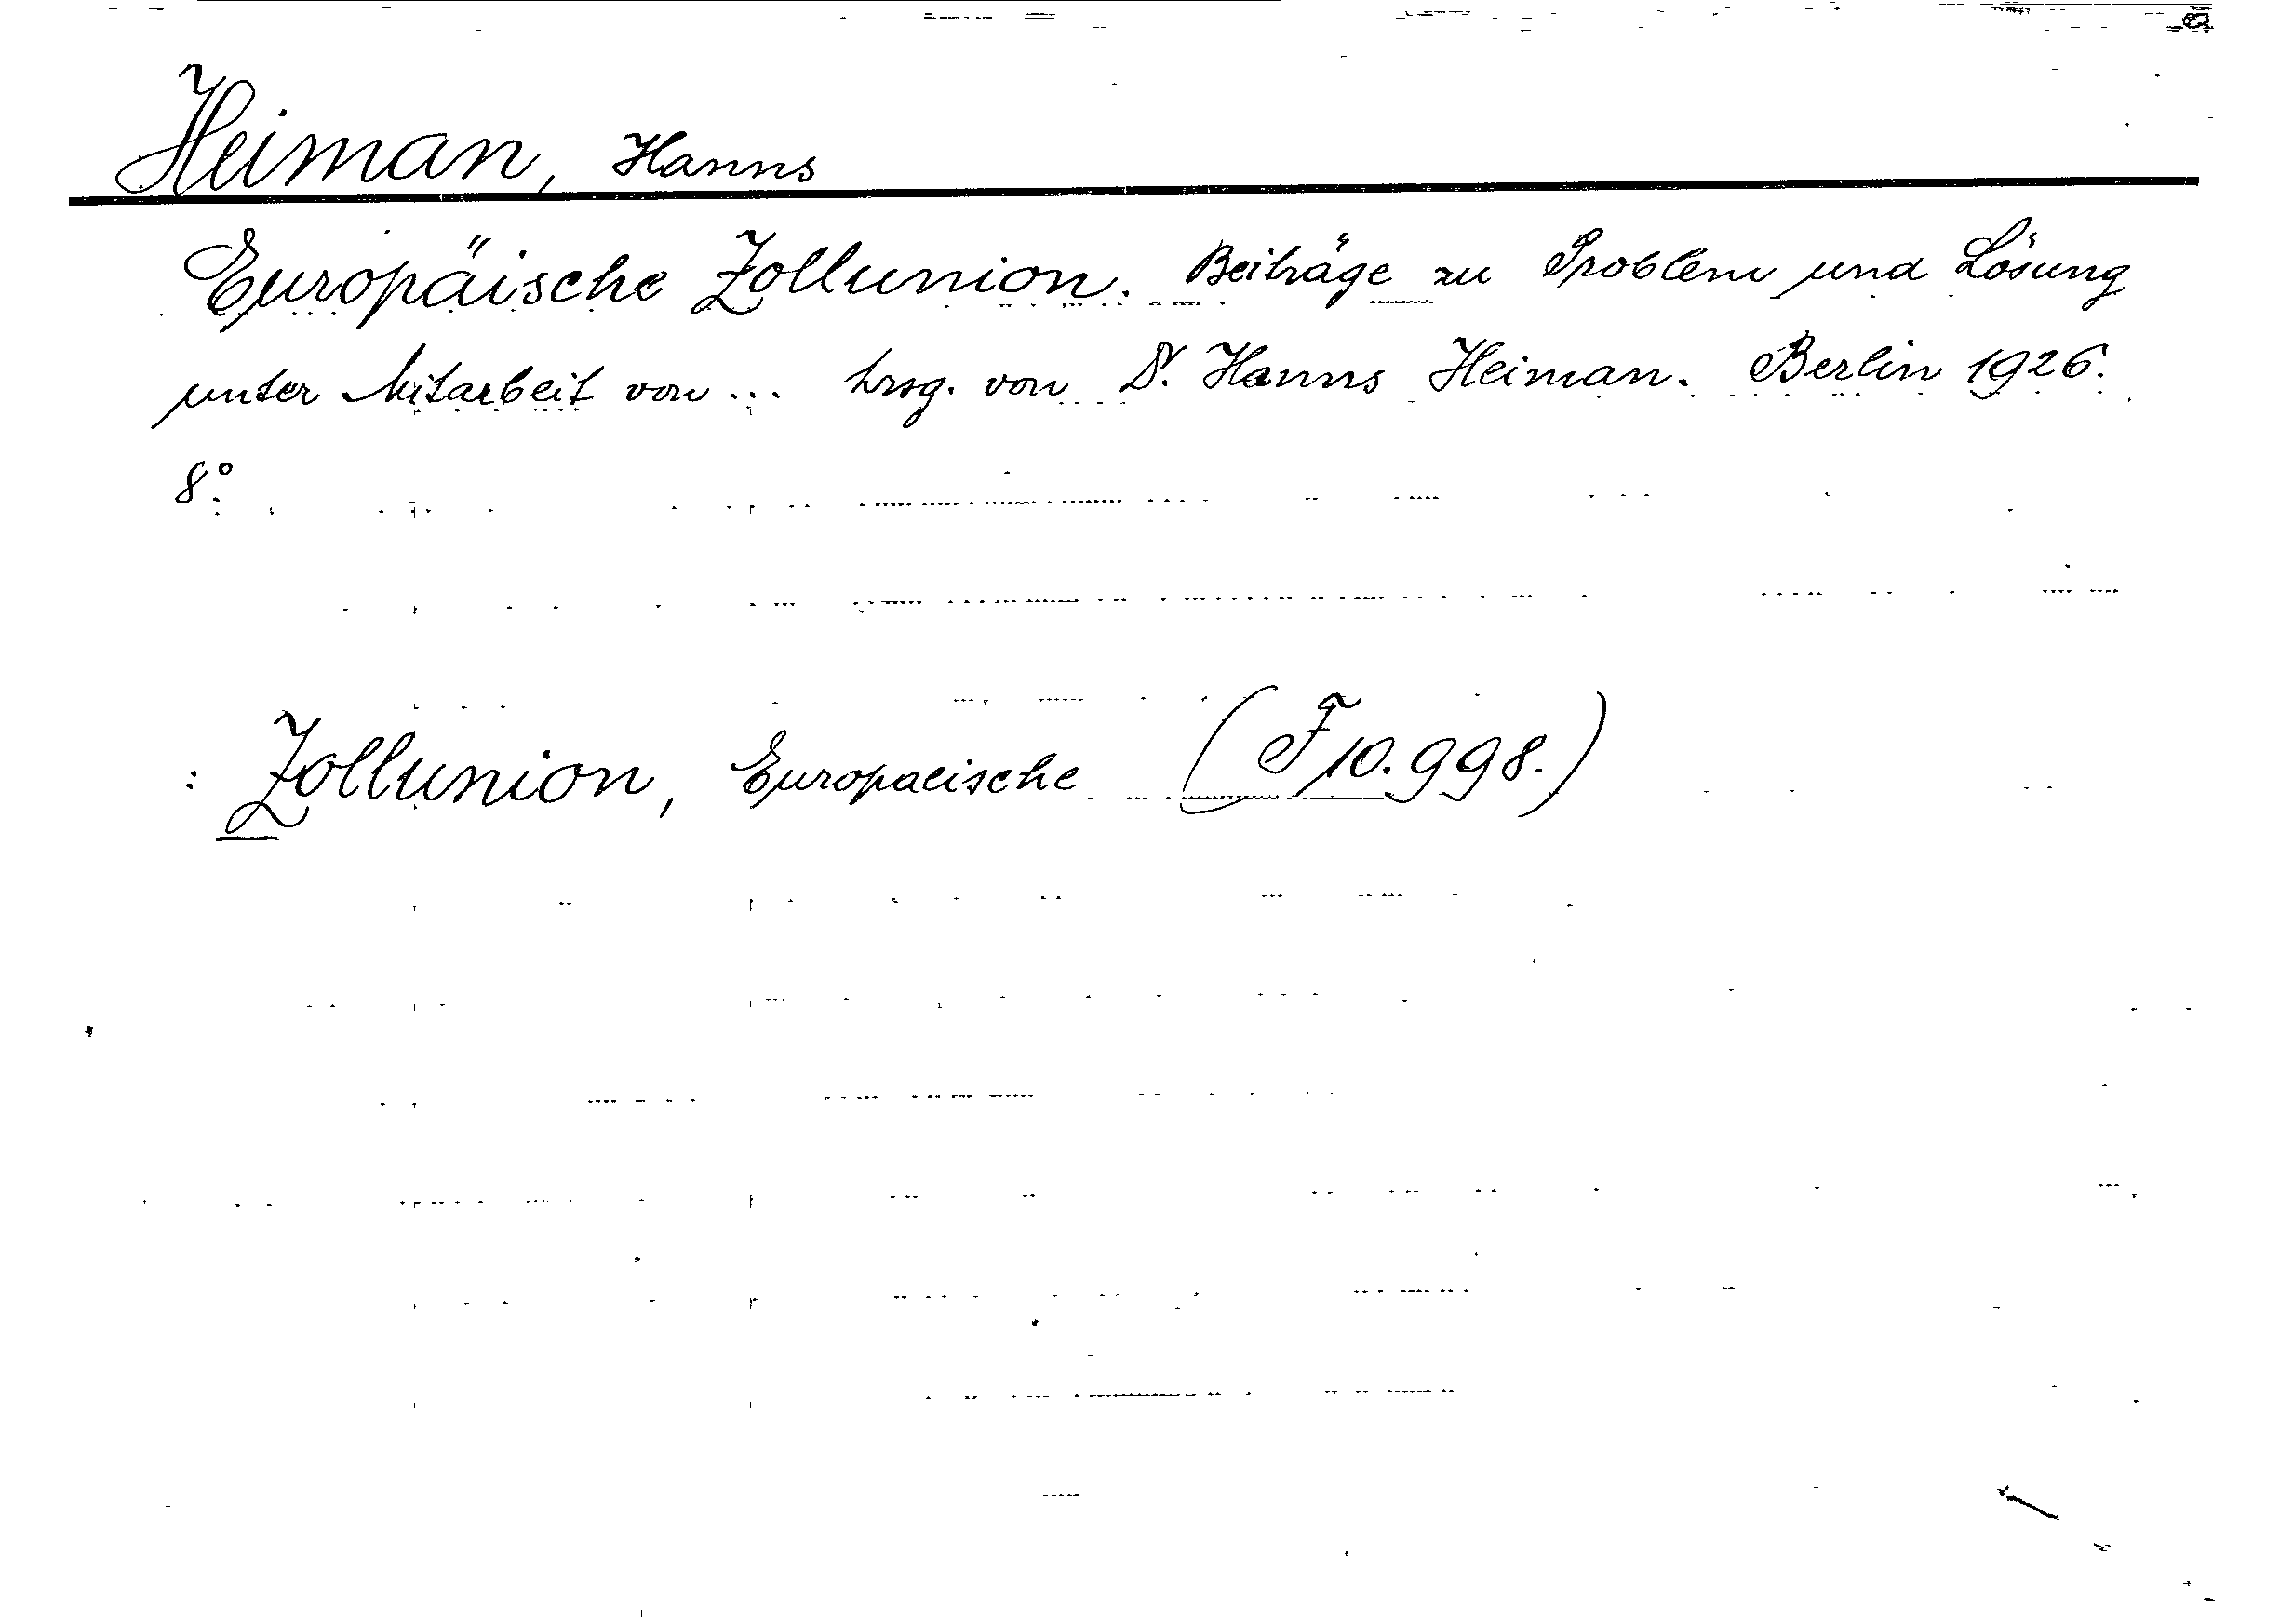 Heiman, Hanns
Europäische Zollunion. Beiträge zu Problem und Lösung
unter Mitarbeit von ... hrsg. von Dr. Hanns Heiman. Berlin 1926.
8°.
: Zollunion, Europaeische (F 10.998.)